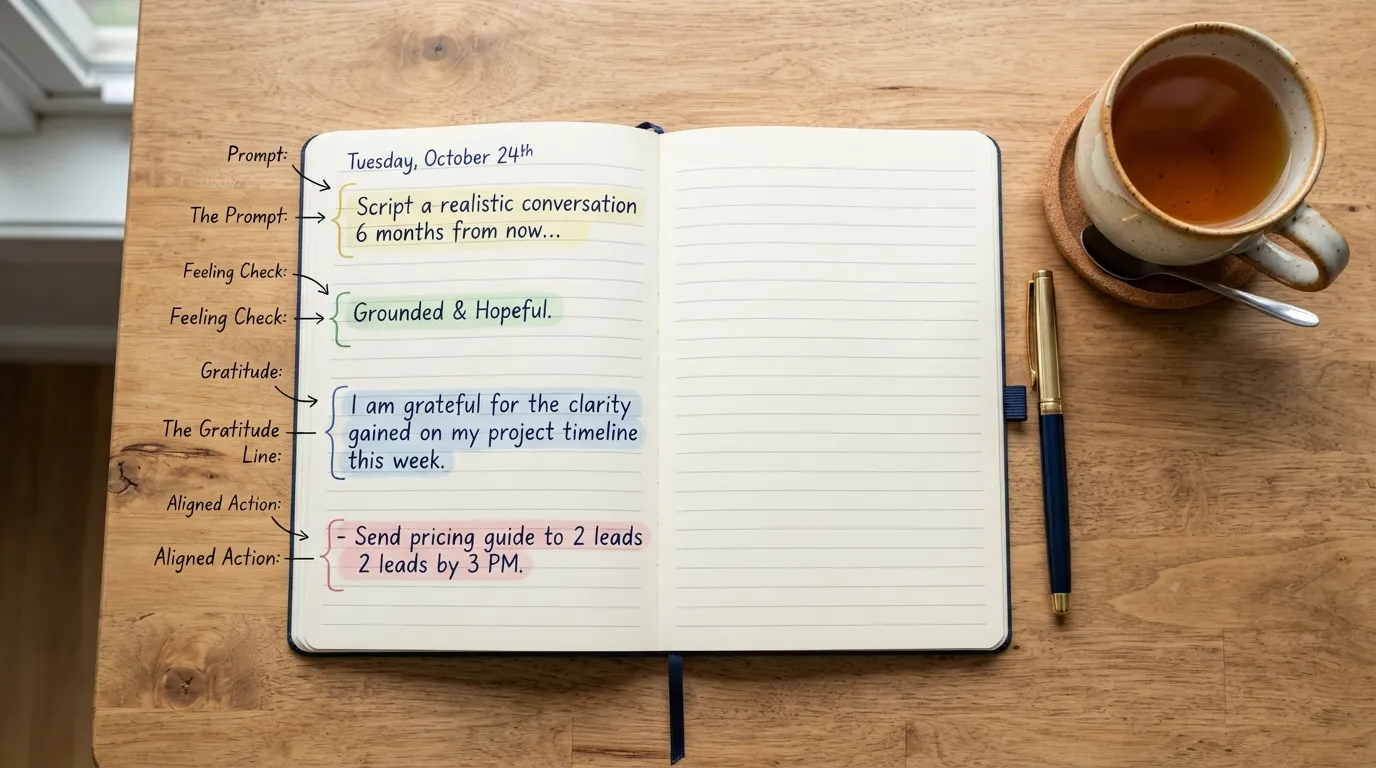 Prompt:
Tuesday, October 24th
The Prompt:
Script a realistic conversation
6 months from now...
Feeling Check:
Feeling Check:
Grounded & Hopeful.
Gratitude:
I am grateful for the clarity
The Gratitude
gained on my project timeline
Line:
this week.
Aligned Action:
- Send pricing guide to 2 leads
Aligned Action:
2 leads by 3 PM.